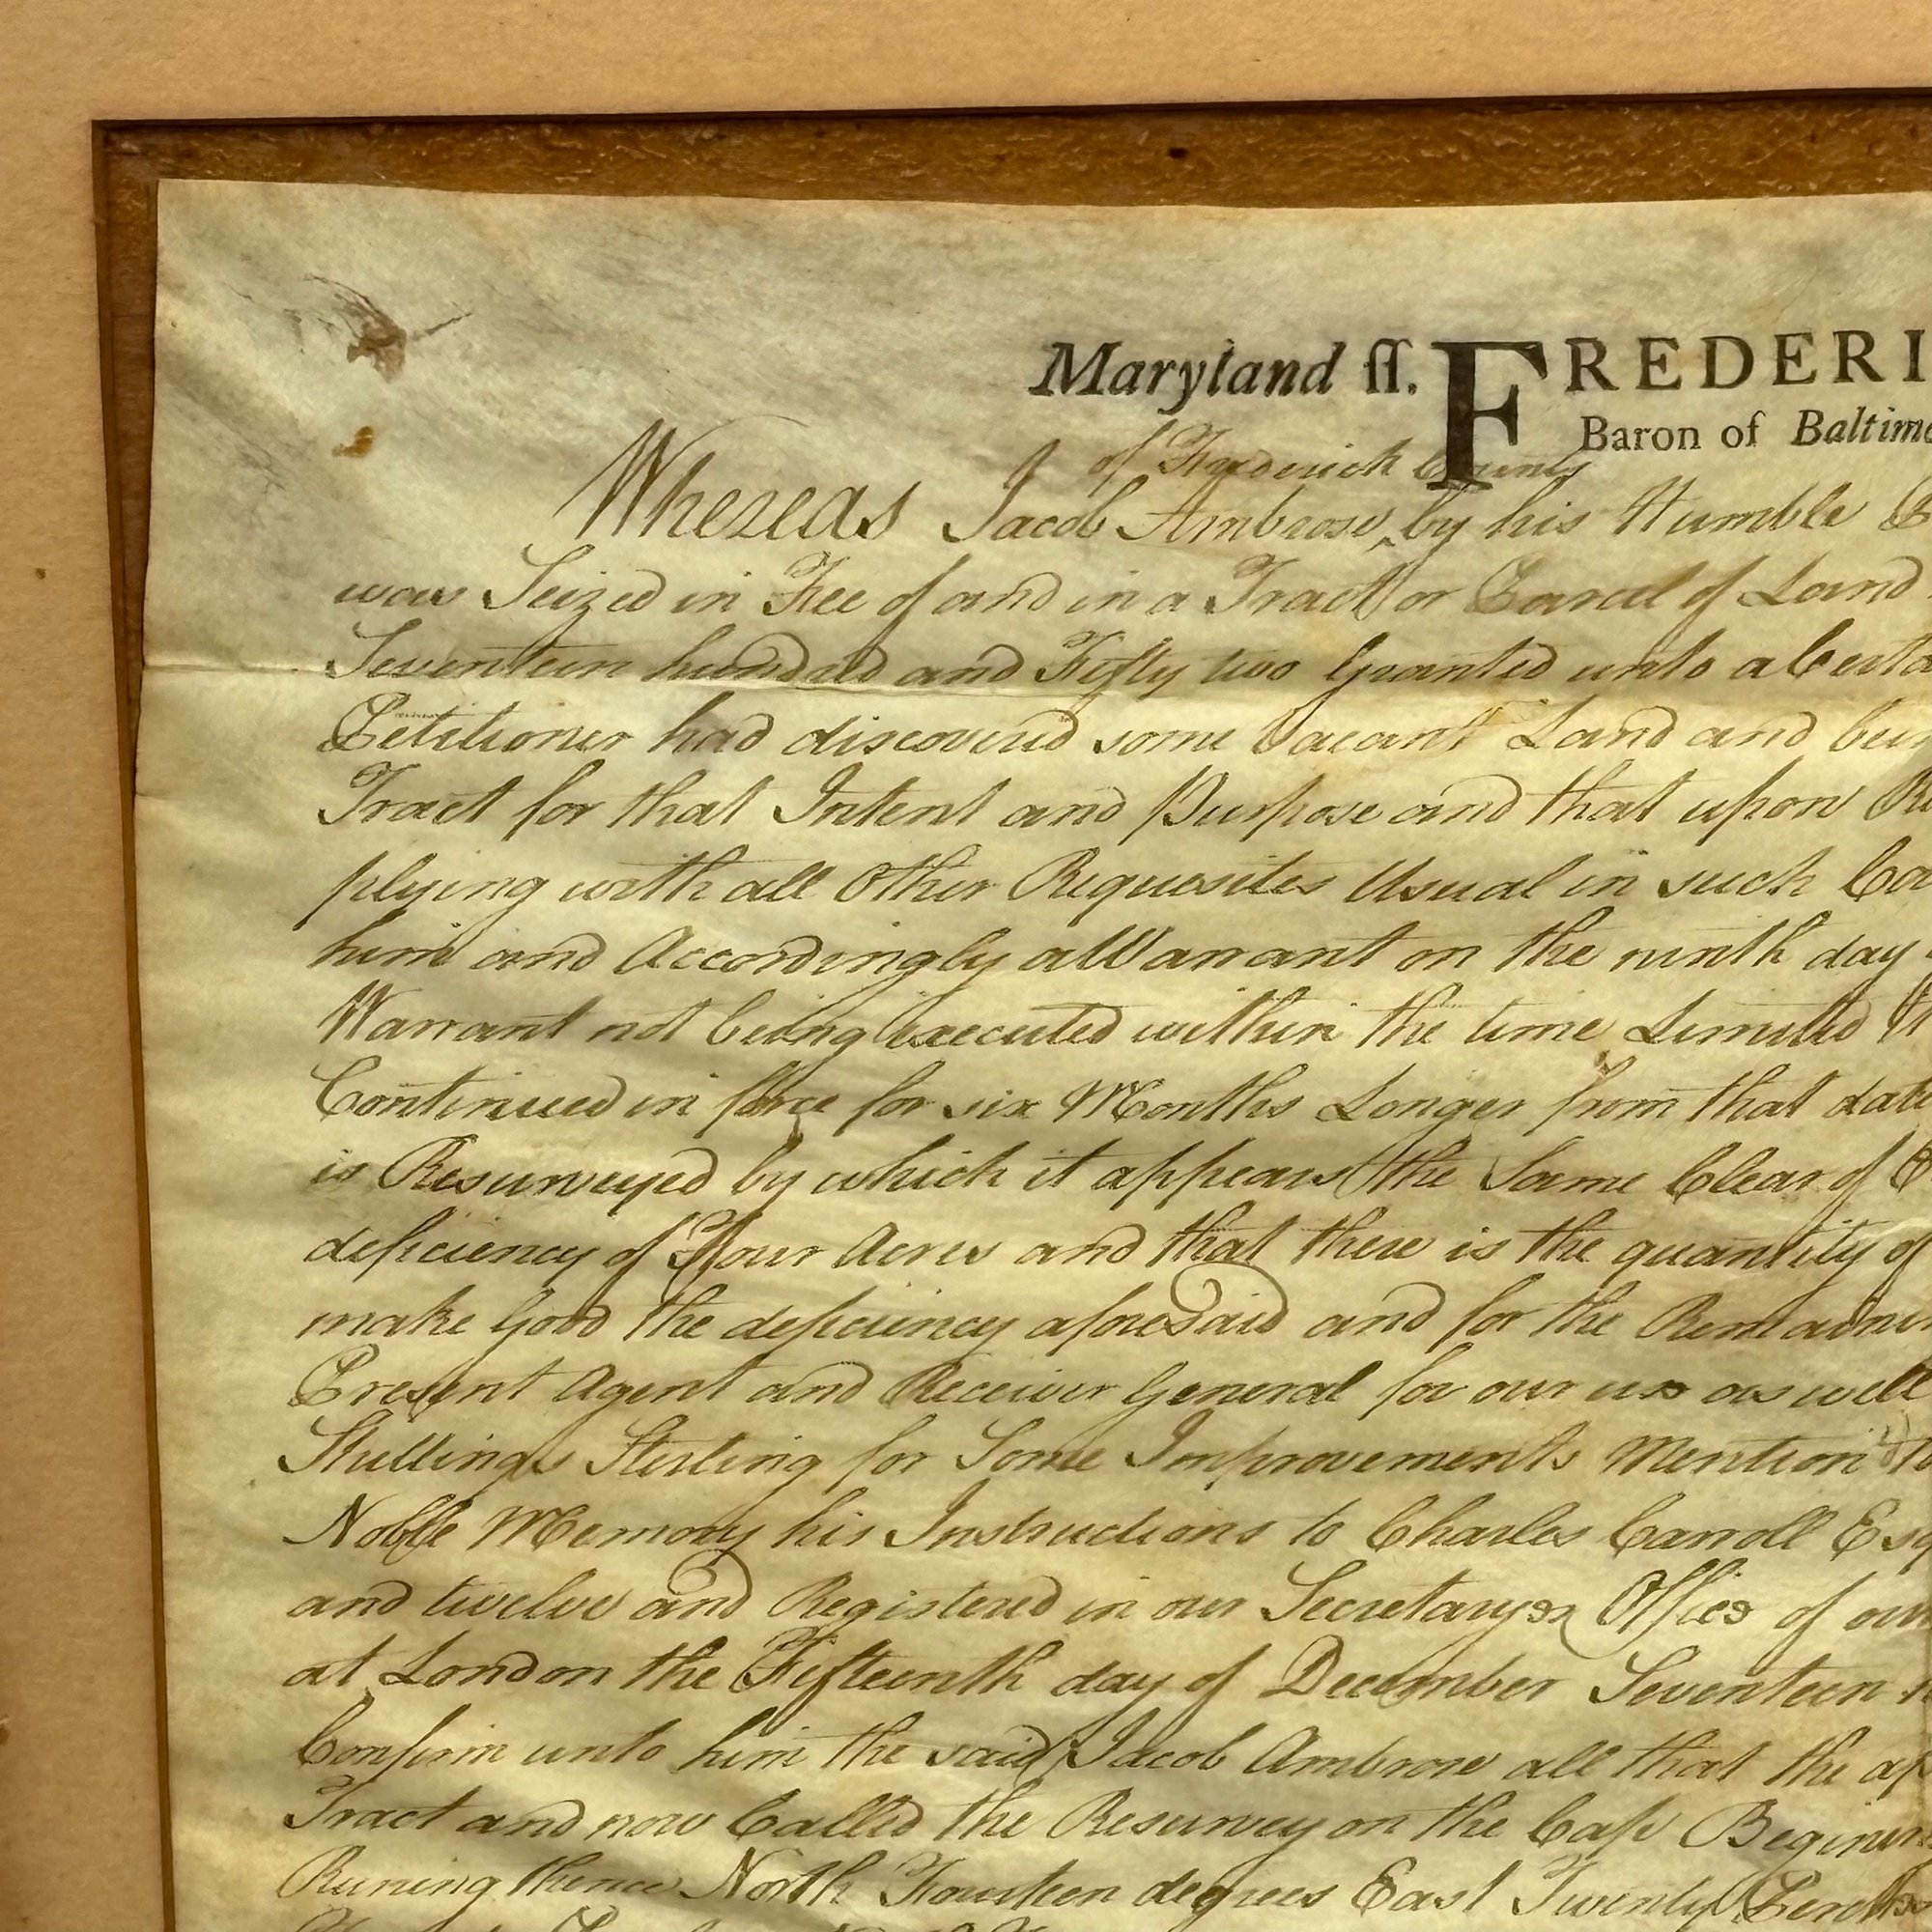 Maryland ſſ. FREDERI
Baron of Baltim
of Frederick County
Whereas Jacob Ambrose, by his Humble
was Seized in Fee of and in a Tract or Parcel of Land
Seventeen hundred and Fifty two Granted unto a Certa
Petitioner had discovered some Vacant Land and bein
Tract for that Intent and Purpose and that upon
plying with all Other Requesites Usual in such Ca
him and Accordingly a Warrant on the ninth day
Warrant not being Executed within the time Limited
Continued in force for six Months Longer from that date
is Resurveyed by which it appears the Same Clear of
deficiency of Four Acres and that there is the quantity of
make Good the deficiency aforesaid and for the Remaine
Present Agent and Receiver General for our use as well
Shillings Sterling for Some Improvements Mention
Noble Memory his Instructions to Charles Carroll Esq
and twelve and Registered in our Secretarys Office of our
at London the Fifteenth day of December Seventeen
Confirm unto him the said Jacob Ambrose all that the af
Tract and now Called the Resurvey on the Cap Beginn
Runing thence North Fourteen degrees East Twenty Perches